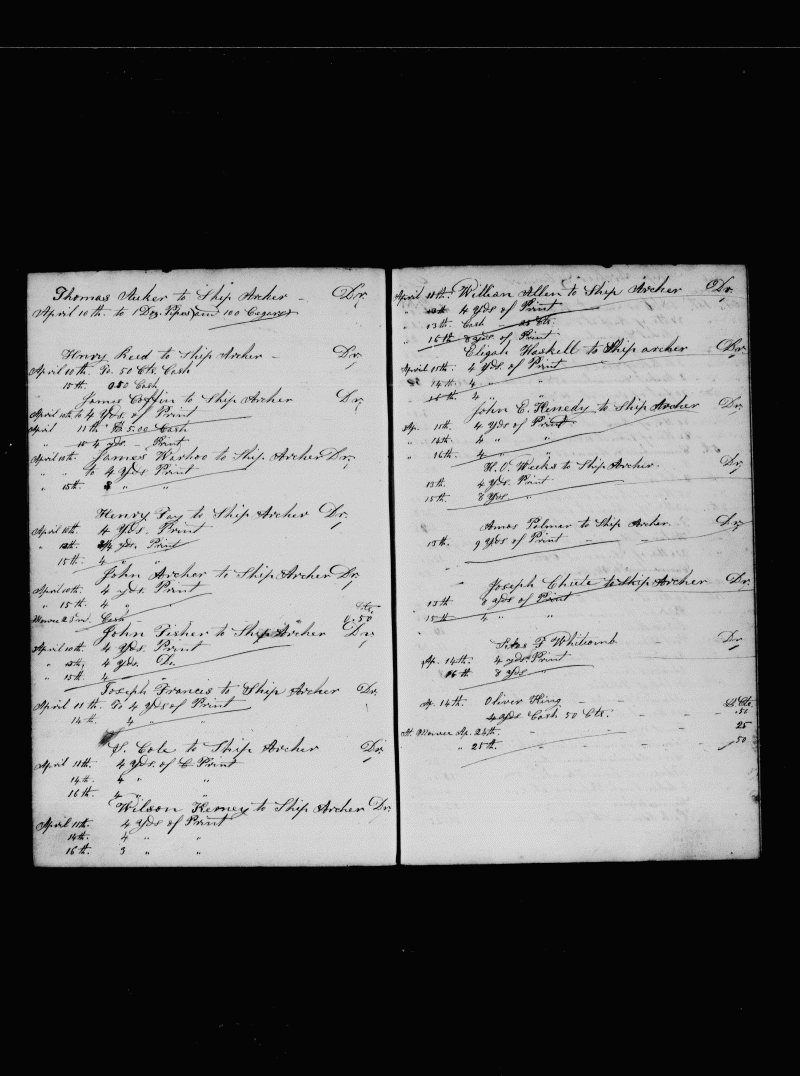 Thomas Tucker to Ship Archer - Dr,
April 10th. to 1 Doz. Pipes, and 100 Cegars
Henry Reed to Ship Archer - Dr,
April 10th. To 50 Cts Cash
15th. 0.50 Cash
James Coffin to Ship Archer Dr,
April 10th to 4 Yds. of Print
April 11th " 5.00 Cash
" 15 4 yds - Print
James Warhoo to Ship Archer Dr,
April 10th.
" " to 4 Yds Print
" 15th. 8 " "
Henry Fay to Ship Archer Dr,
April 10th. 4 Yds. Print
" 12th. yds. Print
15th. 4 " "
John Archer to Ship Archer Dr,
April 10th. 4 yds. Print
" 15th. 4 " "
Mowee 25 Cash - Cts. 6.50
John Fisher to Ship Archer Dr,
April 10th. 4 Yds. Print
" 4 Yds. Do.
" 15th. 4 "
Joseph Francis to Ship Archer Dr,
April 11th. To 4 Yds of Print
14th. 4 " "
Cole to Ship Archer Dr,
April 11th. 4 Yds. of Print
14th. 4 " "
16th. 4 " "
Wilson Kerney to Ship Archer Dr,
April 11th. 4 Yds of Print
14th. 4 " "
16th. 3 " "
April 11th. William Allen to Ship Archer Dr,
4 Yds of Print
" 13th. Cash - 25 Cts.
" 16th 8 yds. of Print
Eligah Haskell to Ship archer Dr,
April 11th. 4 Yds. of Print
" 14th. 4 " "
- 16th. 4 " "
John E. Kenedy to Ship Archer Dr,
Ap. 11th. 4 Yds of Print
" 14th. 4 " "
" 16th. 4 " "
H. O. Weeks to Ship Archer. Dr,
13th. 4 Yds. Print
15th. 8 Yds "
Amos Palmer to Ship Archer. Dr,
13th. 9 Yds of Print
Joseph Chute to Ship Archer Dr,
13th 8 yds of Print
15th. 4 " "
Silas F Whitcomb Dr,
Ap. 14th. 4 yds. Print
16th. 8 Yds "
Ap. 14th. Oliver King - - $ Cts.
4 Yds Cash 50 Cts. - - .50
At. Mowee Ap. 24th. - - 25
" 25th. - - 50